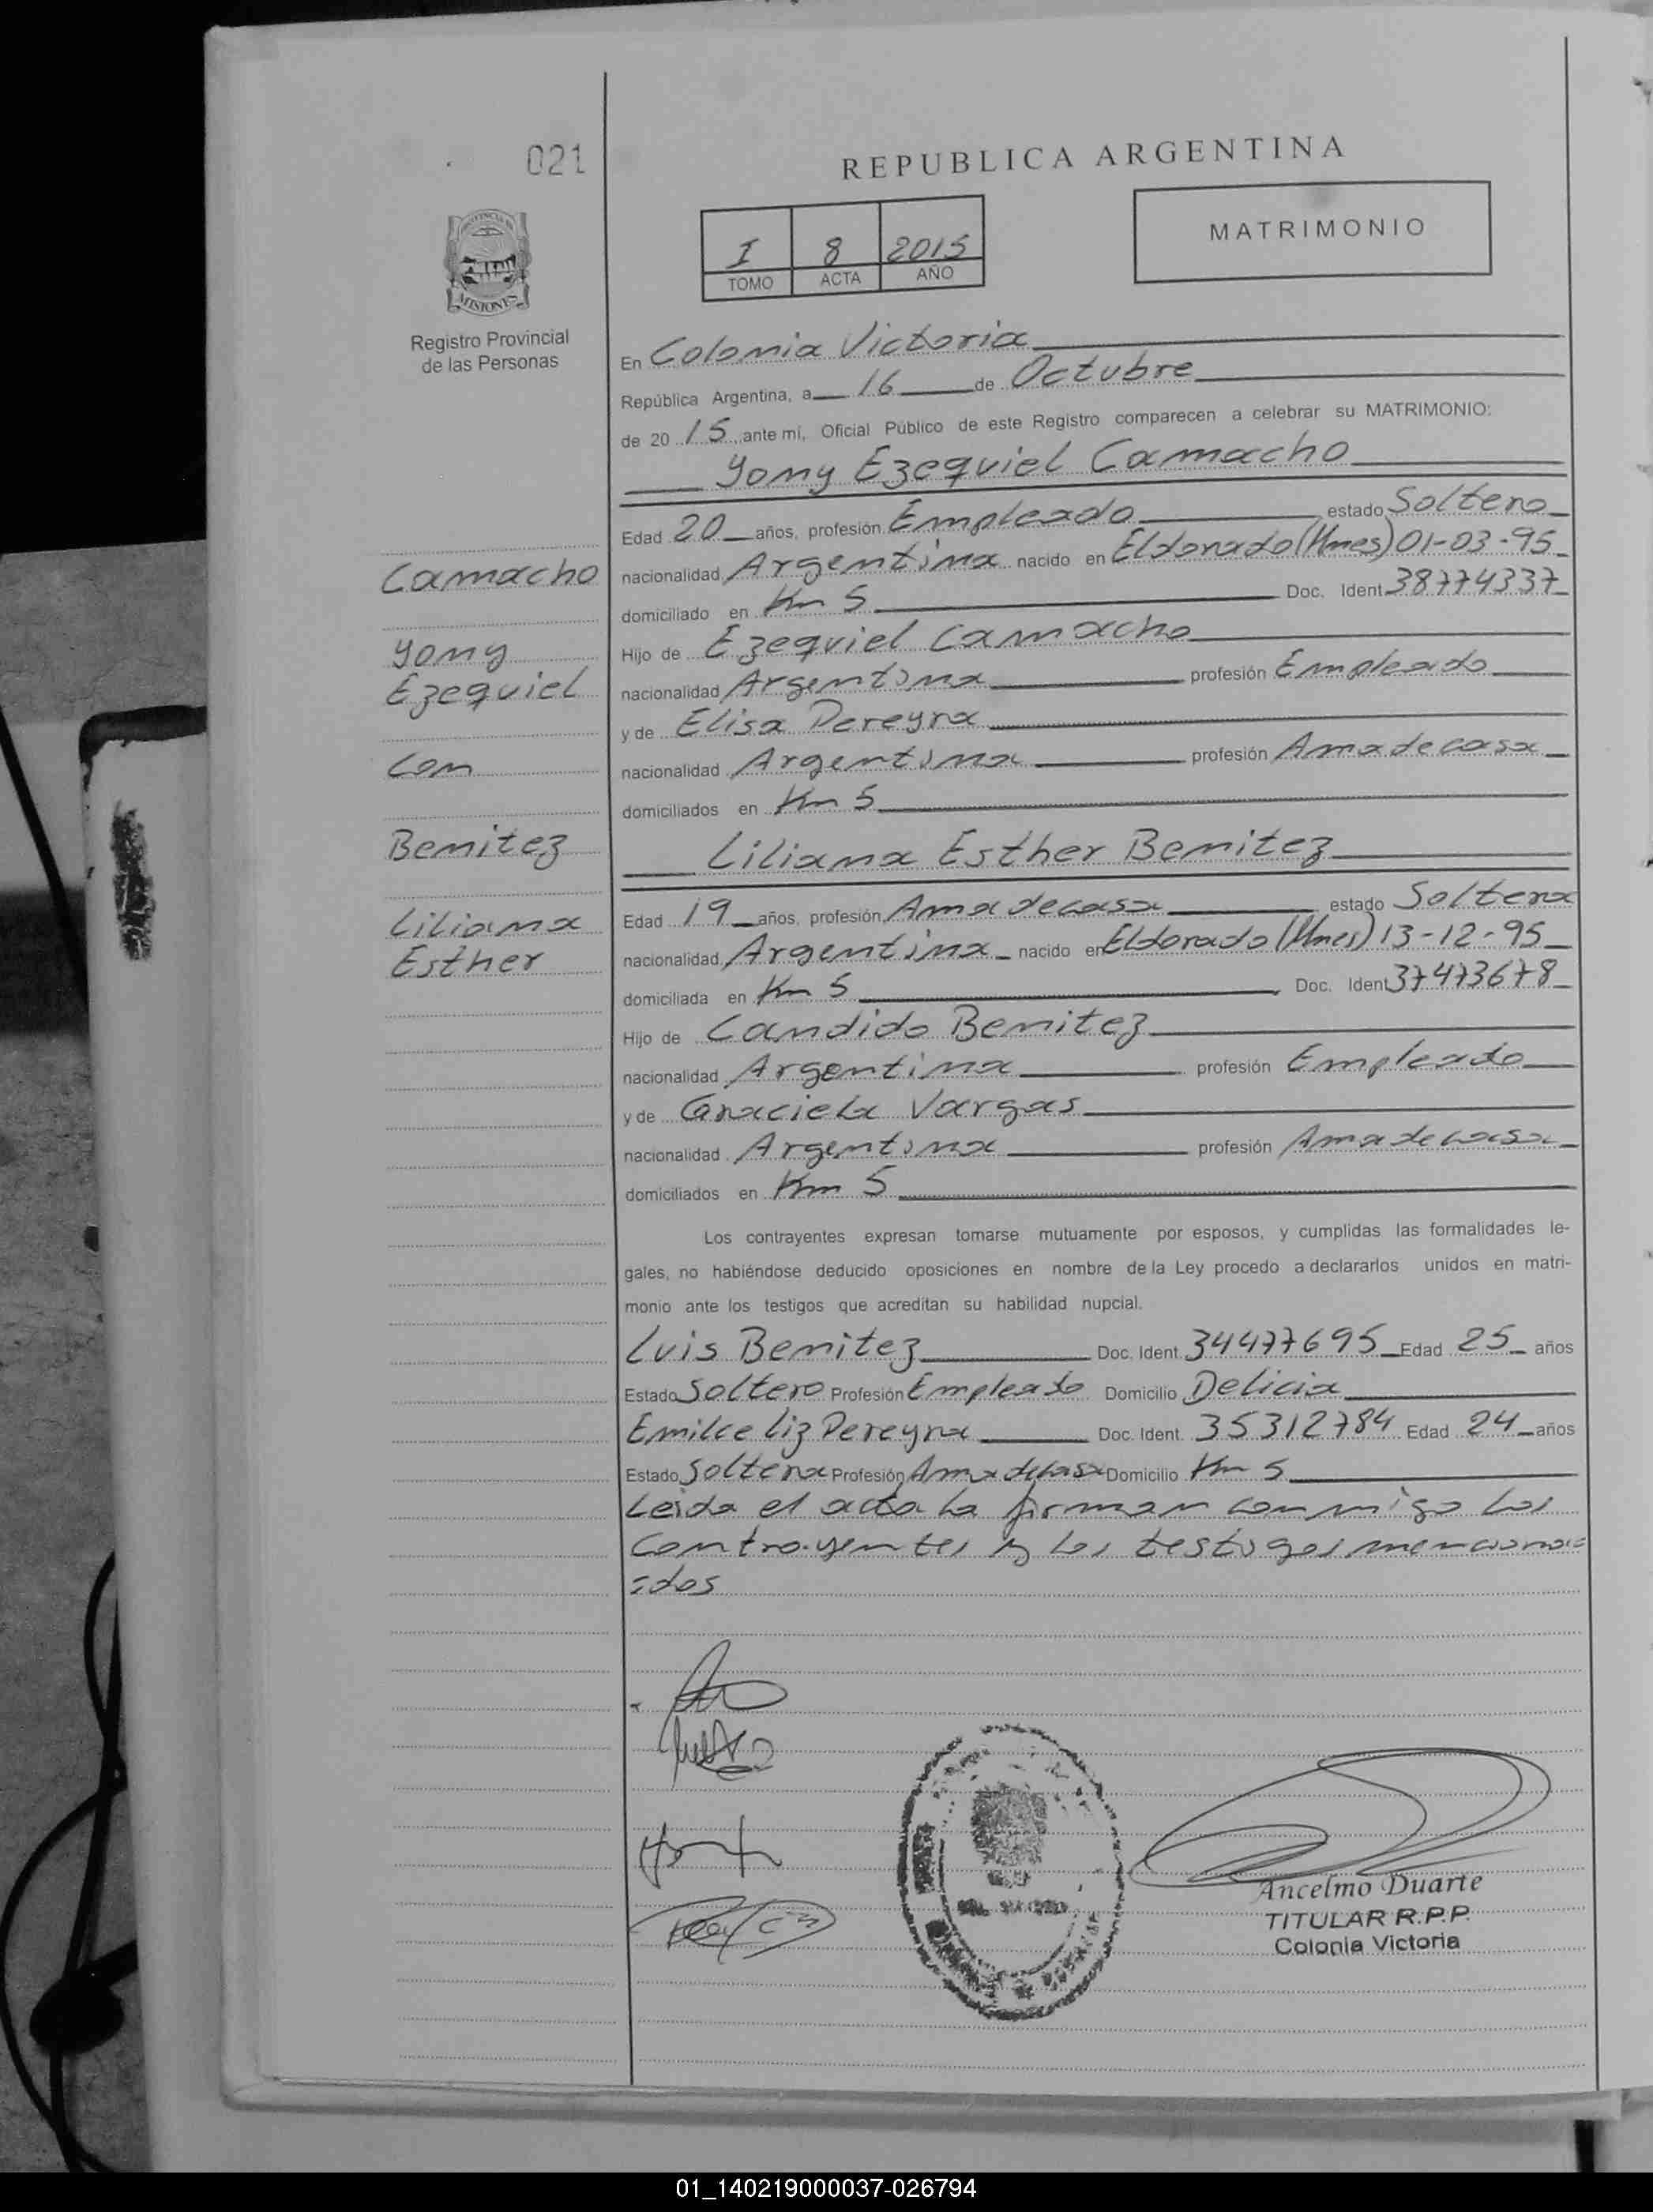 021
REPUBLICA ARGENTINA
PROVINCIA DE
MISIONES
Registro Provincial
de las Personas
I 8 2015
TOMO ACTA AÑO
MATRIMONIO
En Colonia Victoria
República Argentina, a 16 de Octubre
de 20 15 ante mi, Oficial Público de este Registro comparecen a celebrar su MATRIMONIO:
Yony Ezequiel Camacho
Edad 20 años, profesión Empleado estado Soltero
nacionalidad Argentina nacido en Eldorado (Mnes) 01-03-95
domiciliado en Km 5 Doc. Ident 38774337
Hijo de Ezequiel Camacho
nacionalidad Argentina profesión Empleado
y de Elisa Pereyra
nacionalidad Argentina profesión Ama de casa
domiciliados en Km 5
Liliana Esther Benitez
Edad 19 años, profesión Ama de casa estado Soltera
nacionalidad Argentina nacido en Eldorado (Mnes) 13-12-95
domiciliada en Km 5 Doc. Ident 37473678
Hijo de Candido Benitez
nacionalidad Argentina profesión Empleado
y de Graciela Vargas
nacionalidad Argentina profesión Ama de casa
domiciliados en Km 5
Camacho
Yony
Ezequiel
con
Benitez
Liliana
Esther
Los contrayentes expresan tomarse mutuamente por esposos, y cumplidas las formalidades le-
gales, no habiéndose deducido oposiciones en nombre de la Ley procedo a declararlos unidos en matri-
monio ante los testigos que acreditan su habilidad nupcial.
Luis Benitez Doc. Ident. 34477695 Edad 25 años
Estado Soltero Profesión Empleado Domicilio Delicia
Emilce Liz Pereyra Doc. Ident. 35312784 Edad 24 años
Estado Soltera Profesión Ama de casa Domicilio Km 5
Leida el acta la firman conmigo los
contrayentes y los testigos menciona=
=dos
Ancelmo Duarte
TITULAR R.P.P.
Colonia Victoria
01_140219000037-026794